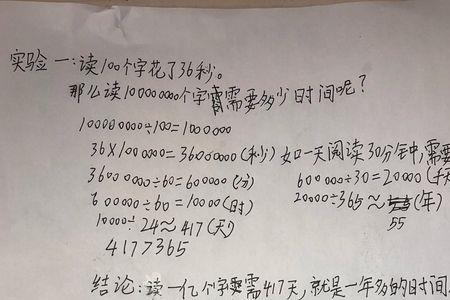 实验一:读100个字花了36秒。
那么读100000000个字需要多少时间呢?
100000000÷100=1000000
36×1000000=36000000(秒) 如一天阅读30分钟,需要
36000000÷60=600000(分) 600000÷30=20000(天)
600000÷60=10000(时) 20000÷365≈55(年)
10000÷24≈417(天)
417>365
结论:读一亿个字要需417天,就是一年多的时间